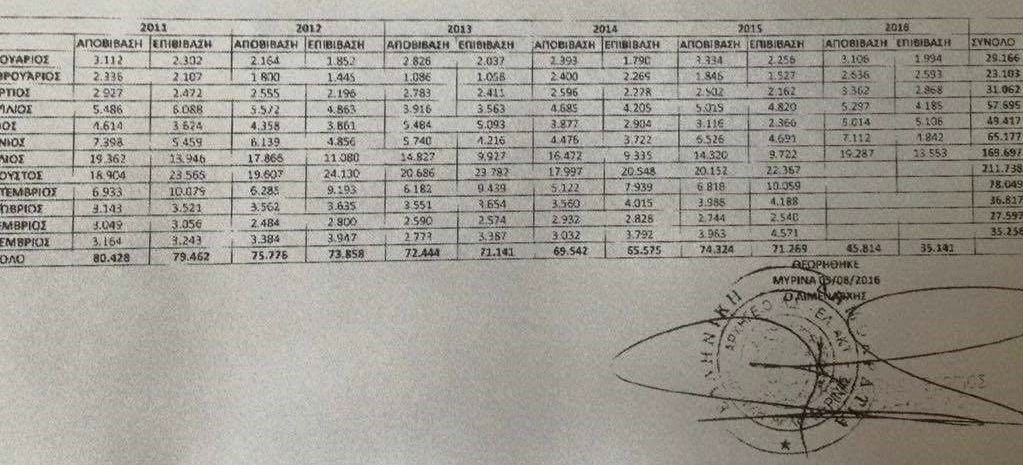 2011 2012 2013 2014 2015 2016
ΑΠΟΒΙΒΑΣΗ ΕΠΙΒΙΒΑΣΗ ΑΠΟΒΙΒΑΣΗ ΕΠΙΒΙΒΑΣΗ ΑΠΟΒΙΒΑΣΗ ΕΠΙΒΙΒΑΣΗ ΑΠΟΒΙΒΑΣΗ ΕΠΙΒΙΒΑΣΗ ΑΠΟΒΙΒΑΣΗ ΕΠΙΒΙΒΑΣΗ ΑΠΟΒΙΒΑΣΗ ΕΠΙΒΙΒΑΣΗ ΣΥΝΟΛΟ
ΟΥΑΡΙΟΣ 3.112 2.302 2.164 1.852 2.826 2.037 2.393 1.790 3.334 2.256 3.106 1.994 29.166
ΒΡΟΥΑΡΙΟΣ 2.336 2.107 1.800 1.445 1.086 1.058 2.400 2.269 1.846 1.527 2.636 2.593 23.103
ΡΤΙΟΣ 2.927 2.472 2.555 2.196 2.783 2.411 2.596 2.278 2.502 2.162 3.362 2.868 31.062
ΙΛΙΟΣ 5.486 6.088 5.572 4.863 3.916 3.563 4.685 4.205 5.015 4.820 5.297 4.185 57.695
ΟΣ 4.614 3.624 4.358 3.861 5.484 5.093 3.877 2.904 3.116 2.366 5.014 5.106 49.417
ΝΙΟΣ 7.398 5.459 6.139 4.856 5.740 4.216 4.476 3.722 6.526 4.691 7.112 4.842 65.177
ΛΙΟΣ 19.362 13.946 17.866 11.080 14.827 9.927 16.472 9.335 14.320 9.722 19.287 13.553 169.697
ΟΥΣΤΟΣ 18.904 23.565 19.607 24.130 20.686 23.782 17.997 20.548 20.152 22.367 211.738
ΤΕΜΒΡΙΟΣ 6.933 10.079 6.285 9.193 6.182 9.439 5.122 7.939 6.818 10.059 78.049
ΩΒΡΙΟΣ 3.143 3.521 3.562 3.635 3.551 3.654 3.560 4.015 3.988 4.188 36.817
ΕΜΒΡΙΟΣ 3.049 3.056 2.484 2.800 2.590 2.574 2.932 2.828 2.744 2.540 27.597
ΕΜΒΡΙΟΣ 3.164 3.243 3.384 3.947 2.773 3.387 3.032 3.792 3.963 4.571 35.256
ΟΛΟ 80.428 79.462 75.776 73.858 72.444 71.141 69.542 65.575 74.324 71.269 45.814 35.141
ΘΕΩΡΗΘΗΚΕ
ΜΥΡΙΝΑ 05/08/2016
Ο ΛΙΜΕΝΑΡΧΗΣ